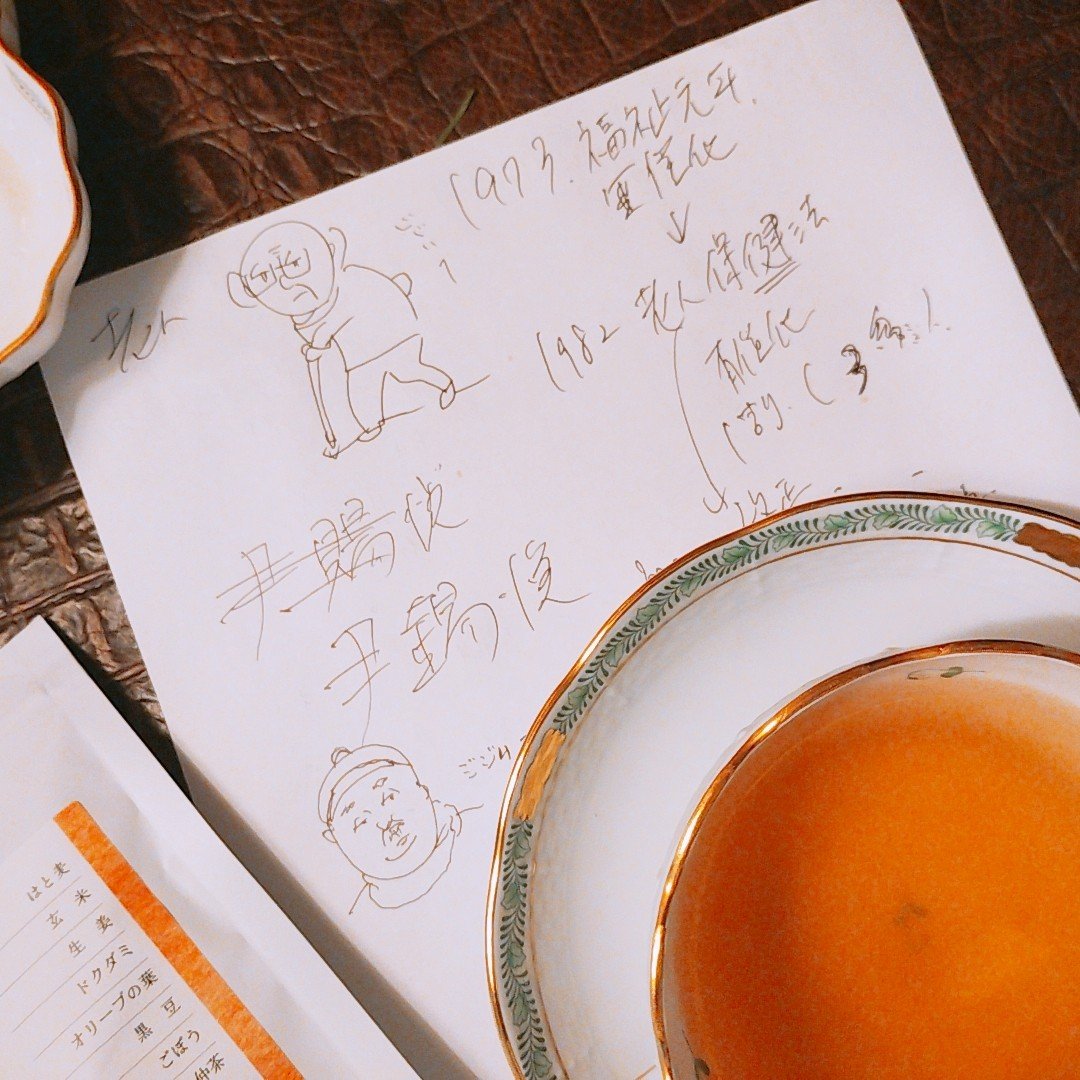 1973. 福祉元年.
無償化
↓
1982 老人保健法
有償化
1割. (3
老人
ジジー
尹錫悦
尹錫悦
はと麦
玄米
生姜
ドクダミ
オリーブの葉
黒豆
ごぼう
仲茶